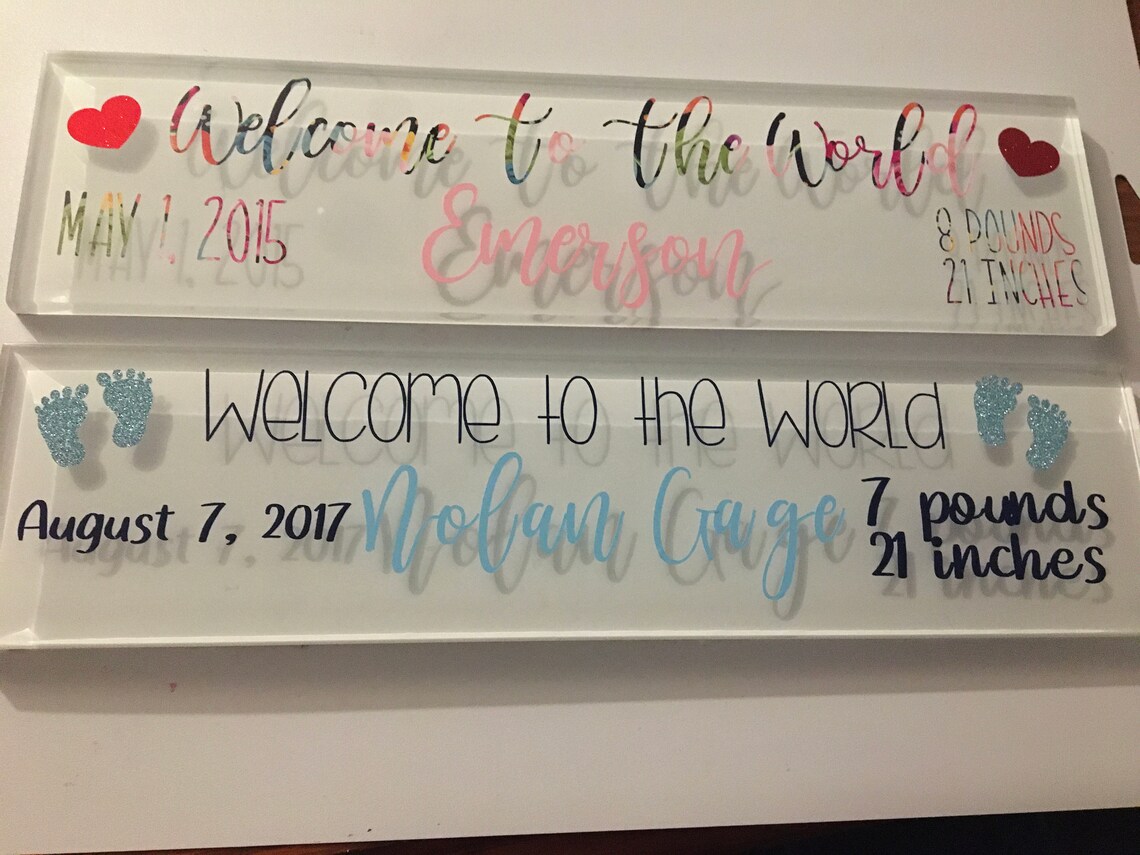 Welcome to the World
MAY 1, 2015
Emerson
8 POUNDS
21 INCHES
WELCOME to the WORLD
August 7, 2017
Nolan Gage
7 pounds
21 inches